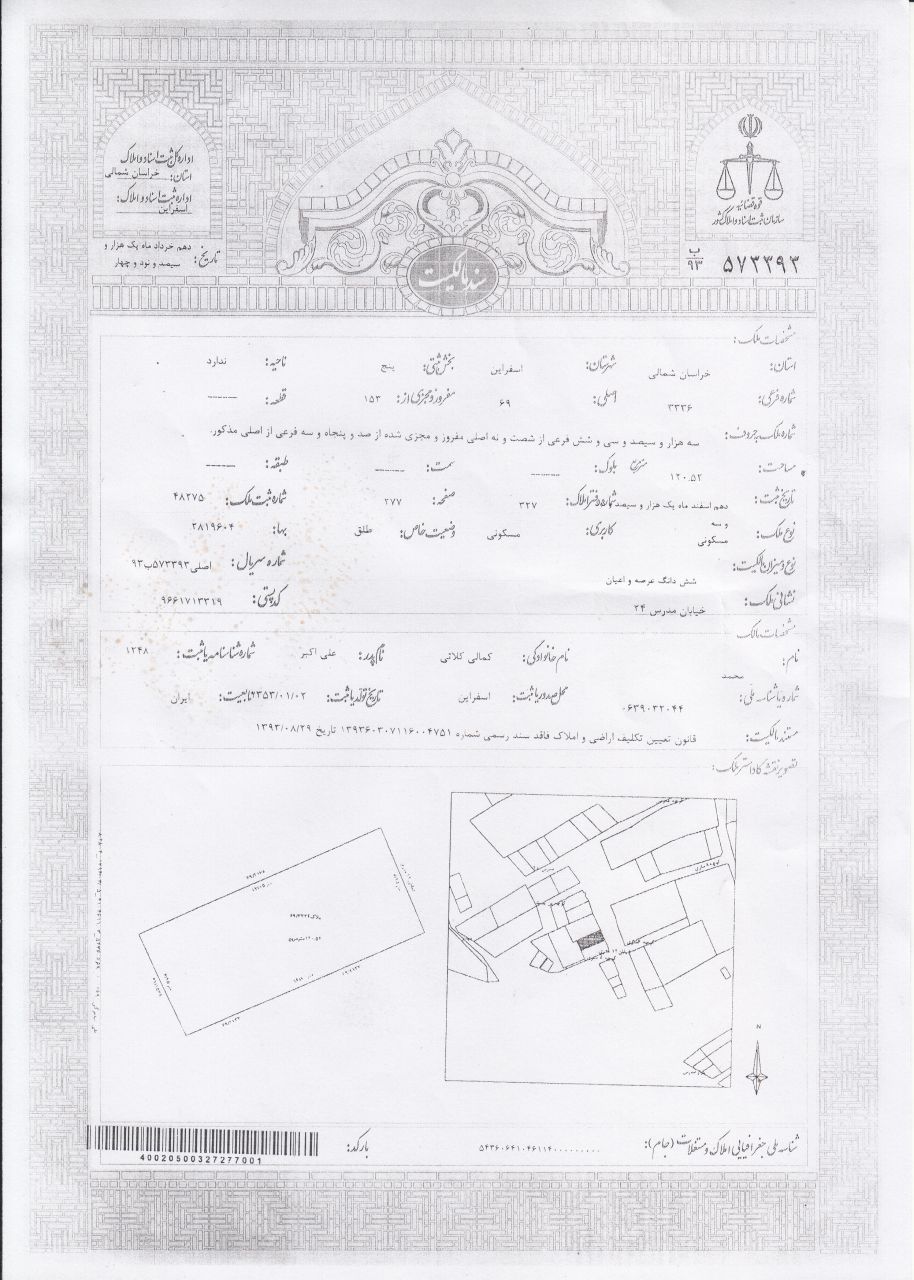 قوه قضائیه
سازمان ثبت اسناد و املاک کشور
ب
۹۳
۵۷۳۳۹۳
سند مالکیت
اداره کل ثبت اسناد و املاک
استان: خراسان شمالی
اداره ثبت اسناد و املاک:
اسفراین
تاریخ: دهم خرداد ماه یک هزار و
سیصد و نود و چهار
مشخصات ملک:
استان: خراسان شمالی شهرستان: اسفراین بخش ثبتی: پنج ناحیه: ندارد
شماره فرعی: ۳۳۳۶ اصلی: ۶۹ مفروز و مجزی از: ۱۵۳ قطعه: ------
شماره ملک بحروف: سه هزار و سیصد و سی و شش فرعی از شصت و نه اصلی مفروز و مجزی شده از صد و پنجاه و سه فرعی از اصلی مذکور.
مساحت: ۱۲۰.۵۲ مترمربع بلوک: ------ سمت: ------ طبقه: ------
تاریخ ثبت: دهم اسفند ماه یک هزار و سیصد شماره دفتر املاک: ۳۲۷ صفحه: ۲۷۷ شماره ثبت ملک: ۴۸۲۷۵
و سه
نوع ملک: مسکونی کاربری: مسکونی وضعیت خاص: طلق بها: ۲۸۱۹۶۰۴
نوع و میزان مالکیت: شش دانگ عرصه و اعیان شماره سریال: اصلی۵۷۳۳۹۳ب۹۳
نشانی ملک: خیابان مدرس ۲۴ کدپستی: ۹۶۶۱۷۱۳۳۱۹
مشخصات مالک
نام: محمد نام خانوادگی: کمالی کلاتی نام پدر: علی اکبر شماره شناسنامه یا ثبت: ۱۲۴۸
شماره یا شناسه ملی: ۰۶۳۹۰۳۲۰۴۴ محل صدور یا ثبت: اسفراین تاریخ تولد یا ثبت: ۱۳۵۳/۰۱/۰۲ تابعیت: ایران
مستند مالکیت: قانون تعیین تکلیف اراضی و املاک فاقد سند رسمی شماره ۱۳۹۳۶۰۳۰۷۱۱۶۰۰۴۷۵۱ تاریخ ۱۳۹۳/۰۸/۲۹
تصویر نقشه کاداستر ملک:
N
شناسه ملی جغرافیایی املاک و مستغلات (جام): ۵۴۳۶۰۶۴۱۰۴۶۱۱۴۰۰۰۰۰۰۰۰۰۰
بارکد:
40020500327277001